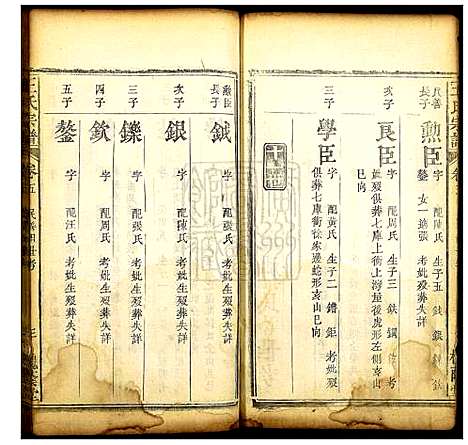 王氏宗譜
良善
長子
勲臣
字
配陳氏
生子五
鉞
銀
鑠
欽
鏊
女一適張
考妣生歿葬失詳
次子
良臣
字
配周氏
生子三
考
妣歿俱葬七庫上衝上灣
後虎形左側亥山
巳向
三子
學臣
字
配黄氏
生子二
鐥
鉅
考妣歿
俱葬七庫衝徐家邊蛇形亥山巳向
勲臣
長子
鉞
字
配
氏
考妣生歿葬失詳
次子
銀
字
配陳氏
考妣生歿葬失詳
三子
鑠
字
配張氏
考妣生歿葬失詳
四子
欽
字
配周氏
考妣生歿葬失詳
五子
鏊
字
配汪氏
考妣生歿葬失詳
王氏宗譜
卷五